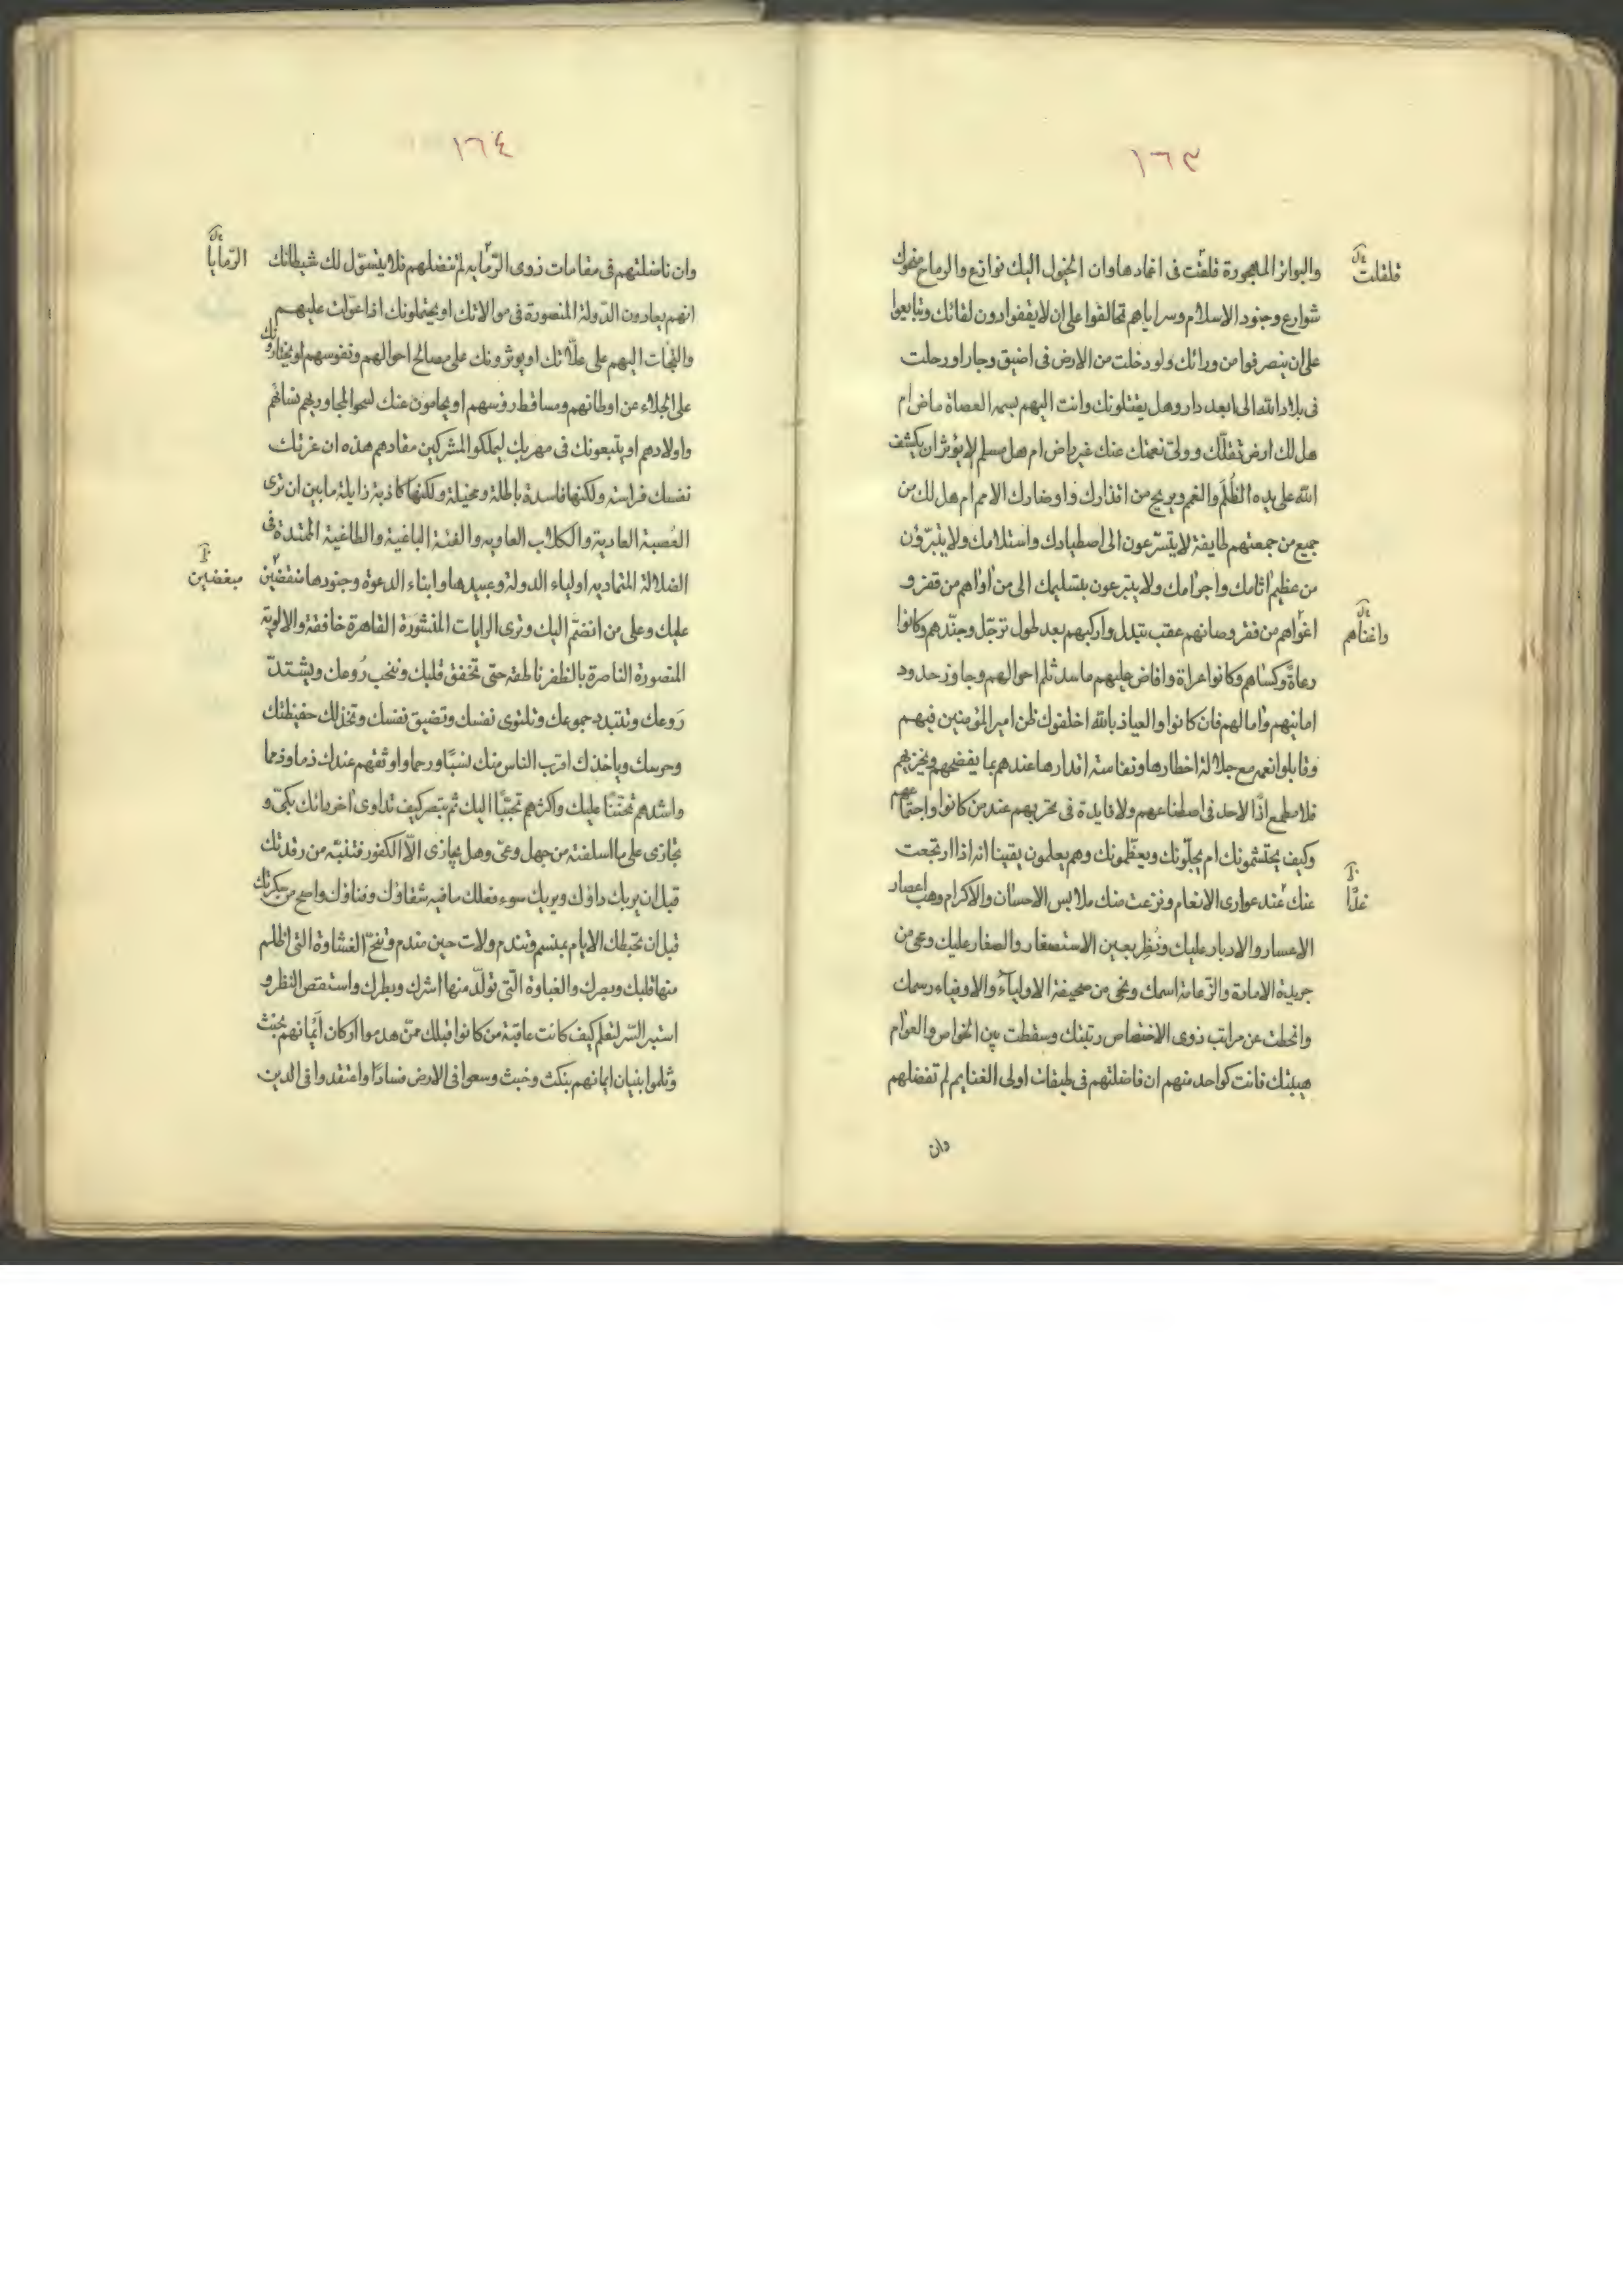 ١٦٣
والبواتر المهجورة قلقت فى اغمادها وان الخيول اليك نوازع والرماح نحوك
قلقلت
شوارع وجنود الاسلام وسراياهم تحالفوا على ان لا يقفوا دون لقائك وتبايعوا
على ان ينصرفوا من ورائك ولو دخلت من الارض فى اضيق وجار او رحلت
فى بلاد الله الى ابعد دار وهل يقتلونك وانت اليهم بسمر العصاة ماض ام
هل لك ارض تقلّك وولىّ نعمتك عنك غير راض ام هل مسلم لا يؤثر ان يكشف
الله على يده الظُلَم والغمم ويريح من اقذارك واوضارك الامم ام هل لك من
جميع من جمعتهم طايفة لا يتسرّعون الى اصطيادك واستلامك ولا يتبرّؤن
من عظيم اثامك واجرامك ولا يتبرعون بتسليمك الى من اواهم من قفر و
اغواهم من فقر وصانهم عقب تبدل واركبهم بعد طول ترجّل وجنّدهم وكانوا
واغناهم
رعاة وكساهم وكانوا عراة وافاض عليهم ما سد ثلم احوالهم وجاوز حدود
امانيهم وامالهم فان كانوا والعياذ بالله اخلفوك ظن امير المؤمنين فيهم
وقابلوا نعمه مع جلالة اخطارها ونفاسة اقدارها عندهم بما يفضحهم ويخزيهم
فلا مطمع اذًا لاحد فى اصطناعهم ولا فايدة فى تحريهم عند من كانوا واجتماعهم
وكيف يحتشمونك ام يجلّونك ويعظّمونك وهم يعلمون يقينا انه اذا ارتجعت
عنك عند عوارى الانعام ونزعت منك ملابس الاحسان والاكرام وهب اعصار
غدًا
الاعسار والادبار عليك ونُظِر بعين الاستصغار والصغار عليك ومحى من
جريدة الامارة والزعامة اسمك ونحى من صحيفة الاولياء والاوفياء رسمك
وانحطت عن مراتب ذوى الاختصاص رتبتك وسقطت بين الخواص والعوام
هيبتك فانت كواحد منهم ان فاضلتهم فى طبقات اولى الغنايم لم تفضلهم
وان
١٦٤
وان ناضلتهم فى مقامات ذوى الرمايه لم تنضلهم فلا يسوّل لك شيطانك
الرمايا
انهم يعادون الدولة المنصورة فى موالاتك او يحتملونك اذا عوّلت عليهم
والتجات اليهم على علّاتك او يوثرونك على مصالح احوالهم ونفوسهم او يختارونك
على الجلاء عن اوطانهم ومساقط رؤسهم او يحامون عنك لسحوا لمجاوريهم نسائهم
واولادهم او يتبعونك فى مهربك ليملكوا المشركين مقادهم هذه ان غرتك
نفسك فراسة ولكنها فاسدة باطلة ومخيلة ولكنها كاذبة زايلة ما بين ان ترى
العُصبة العادية والكلاب العاويه والفئة الباغية والطاغية الممتدة فى
الضلالة المتماديه اولياء الدولة وعبيدها وابناء الدعوة وجنودها منقضّين
مبغضين
عليك وعلى من انضمّ اليك وترى الرايات المنشورة القاهرة خافقة والالوية
المنصورة الناصرة بالظفر ناطقة حتى تخفق قلبك وينخب رُوعك ويشتدّ
رَوعك وتتبدد جموعك وتلتوى نفسك وتضيق نفسك وتخذلك حفيظتك
وحرسك وياخذك اقرب الناس منك نسبًا ورحما واوثقهم عندك ذماما وذمما
واشدهم تحننًا عليك واكثرهم تحببًا اليك ثم تبصر كيف تداوى اخرياتك بكىّ و
تجازى على ما اسلفته من جهل وعىّ وهل يجازى الّا الكفور فتنبّه من رقدتك
قبل ان يريك داؤك ويريك سوء فعلك ما فيه شقاؤك وفناؤك واصح من سكرتك
قبل ان تخبطك الايام بمنسم وتندم ولات حين مندم وتنحّ الغشاوة التى اظلم
منها قلبك وبصرك والغباوة التى تولّد منها اشرك وبطرك واستقص النظر و
استبر السّر لتعلم كيف كانت عاقبة من كانوا قبلك ممّن هدموا اركان أيمانهم بحنث
وثلموا بنيان ايمانهم بنكث وخبث وسعوا فى الارض فسادًا واعتقدوا فى الدين